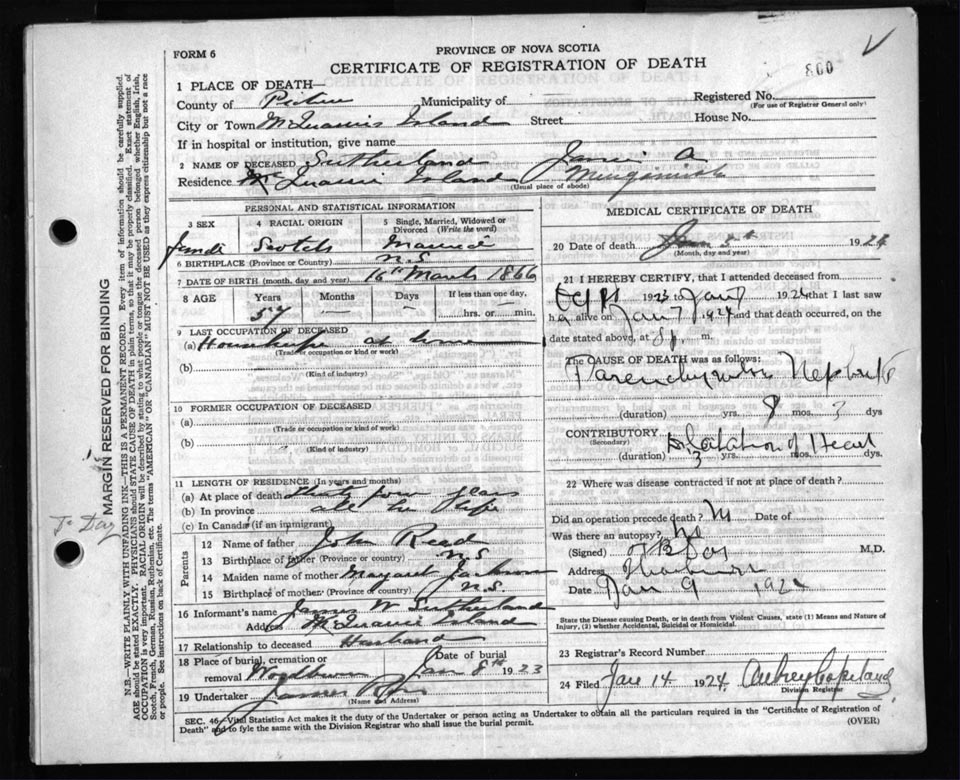 FORM 6
PROVINCE OF NOVA SCOTIA
CERTIFICATE OF REGISTRATION OF DEATH
800
1 PLACE OF DEATH—
County of Pictou Municipality of Registered No. (For use of Registrar General only)
City or Town Island Street House No.
If in hospital or institution, give name
2 NAME OF DECEASED Sutherland A
Residence Island (Usual place of abode)
PERSONAL AND STATISTICAL INFORMATION
3 SEX 4 RACIAL ORIGIN 5 Single, Married, Widowed or Divorced (Write the word)
Scotch Married
6 BIRTHPLACE (Province or Country) N.S
7 DATE OF BIRTH (month, day and year) 16th March 1866
8 AGE Years Months Days If less than one day,
57 — — hrs. or min.
9 LAST OCCUPATION OF DECEASED
(a) at home
(Trade or occupation or kind of work)
(b)
(Kind of industry)
10 FORMER OCCUPATION OF DECEASED
(a)
(Trade or occupation or kind of work)
(b)
(Kind of industry)
11 LENGTH OF RESIDENCE (In years and months)
(a) At place of death thirty four years
(b) In province all her life
(c) In Canada (if an immigrant)
Parents
12 Name of father John Read
13 Birthplace of father (Province or country) N.S
14 Maiden name of mother Margaret Jackson
15 Birthplace of mother (Province or country) N.S.
16 Informant's name James W Sutherland
Address Island
17 Relationship to deceased Husband
18 Place of burial, cremation or removal Woodburn Date of burial Jan 8th 1923
19 Undertaker James
(Name and Address)
MEDICAL CERTIFICATE OF DEATH
20 Date of death Jan 1924
(Month, day and year)
21 I HEREBY CERTIFY, that I attended deceased from
Sept 1923 to Jan 7 1924 that I last saw
h alive on Jan 7 1924 and that death occurred, on the
date stated above, at 8 p m.
The CAUSE OF DEATH was as follows:
Parenchymatous Nephritis
(duration) yrs. 8 mos. 3 dys
CONTRIBUTORY (Secondary) Dilatation of Heart
(duration) 3 yrs. mos. dys.
22 Where was disease contracted if not at place of death?
Did an operation precede death? Date of
Was there an autopsy? No
(Signed) M.D.
Address Thorburn
Date Jan 9 1924
State the Disease causing Death, or in death from Violent Causes, state (1) Means and Nature of Injury, (2) whether Accidental, Suicidal or Homicidal.
23 Registrar's Record Number
24 Filed Jan 14 1924. Aubrey Copeland
Division Registrar
SEC. 46—Vital Statistics Act makes it the duty of the Undertaker or person acting as Undertaker to obtain all the particulars required in the "Certificate of Registration of
Death" and to fyle the same with the Division Registrar who shall issue the burial permit.
(OVER)
MARGIN RESERVED FOR BINDING
To Day
N.B.—WRITE PLAINLY WITH UNFADING INK—THIS IS A PERMANENT RECORD. Every item of information should be carefully supplied.
AGE should be stated EXACTLY. PHYSICIANS should STATE CAUSE OF DEATH in plain terms, so that it may be properly classified. Exact statement of
OCCUPATION is very important. RACIAL ORIGIN will be described by stating to what people or tongue the deceased person belonged whether English, Irish,
Scotch, French, German, Russian, Ruthenian, etc. The terms "AMERICAN" or "CANADIAN" MUST NOT BE USED as they express citizenship but not a race
or people. See instructions on back of Certificate.